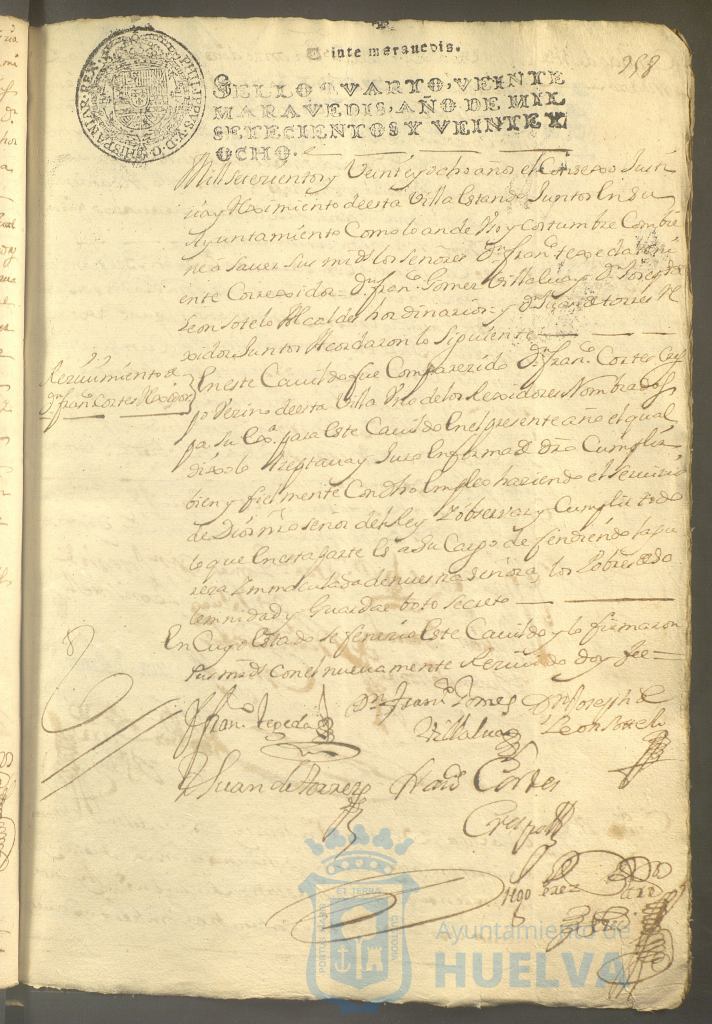 Veinte maravedis.
958
SELLO QVARTO, VEINTE
MARAVEDIS, AÑO DE MIL
SETECIENTOS Y VEINTE Y
OCHO.
PHILIPPUS V. D. G. HISPANIAR. REX
Mill setecientos y Veinte y ocho años el Consexo Justi
zia y Reximiento de esta Villa estando Juntos En su
Ayuntamiento Como lo an de Uso y Costumbre Combie
ne a saver sus mrds los señores Dn. Franco. tepeda
ente Correxidor = Dn. Franco. Gomez Villalua y Dn. Joseph de
Leon sotelo Alcaldes hordinarios y Dn. Juan de torres Re
xidor Juntos Acordaron lo siguiente
Reciuimiento de
Dn. Franco. Cortes Rexidor
En este Cauildo fue Comparezido Dn. Franco. Cortes Cres
po Vezino de esta Villa Uno de los Rexidores Nombrados
pr. su Exa. para este Cauildo En el presente año el qual
dixo lo Azeptaua y Juro En forma de dro Cumplir
bien y fielmente Con dho Empleo haziendo el seruizio
de Dios nro señor del Rey Y obseruar y Cumplir todo
lo que En esta parte es a su Cargo defendiendo la pu
reza Immaculada de nuestra señora, los Pobres
lemnidad y Guardar boto secreto
En Cuyo estado se fenezio este Cauildo y lo firmaron
sus mrds Con el nueuamente Reziuido doy fee =
Franco. tepeda
Dn. Franco. Gomez
Villalua
Dn. Joseph de
Leon Sotelo
Juan de torres
Frco Cortes
Crespo
Perez
ET TERRAE
PORTUS MARIS
CUSTODIA
Ayuntamiento de
HUELVA